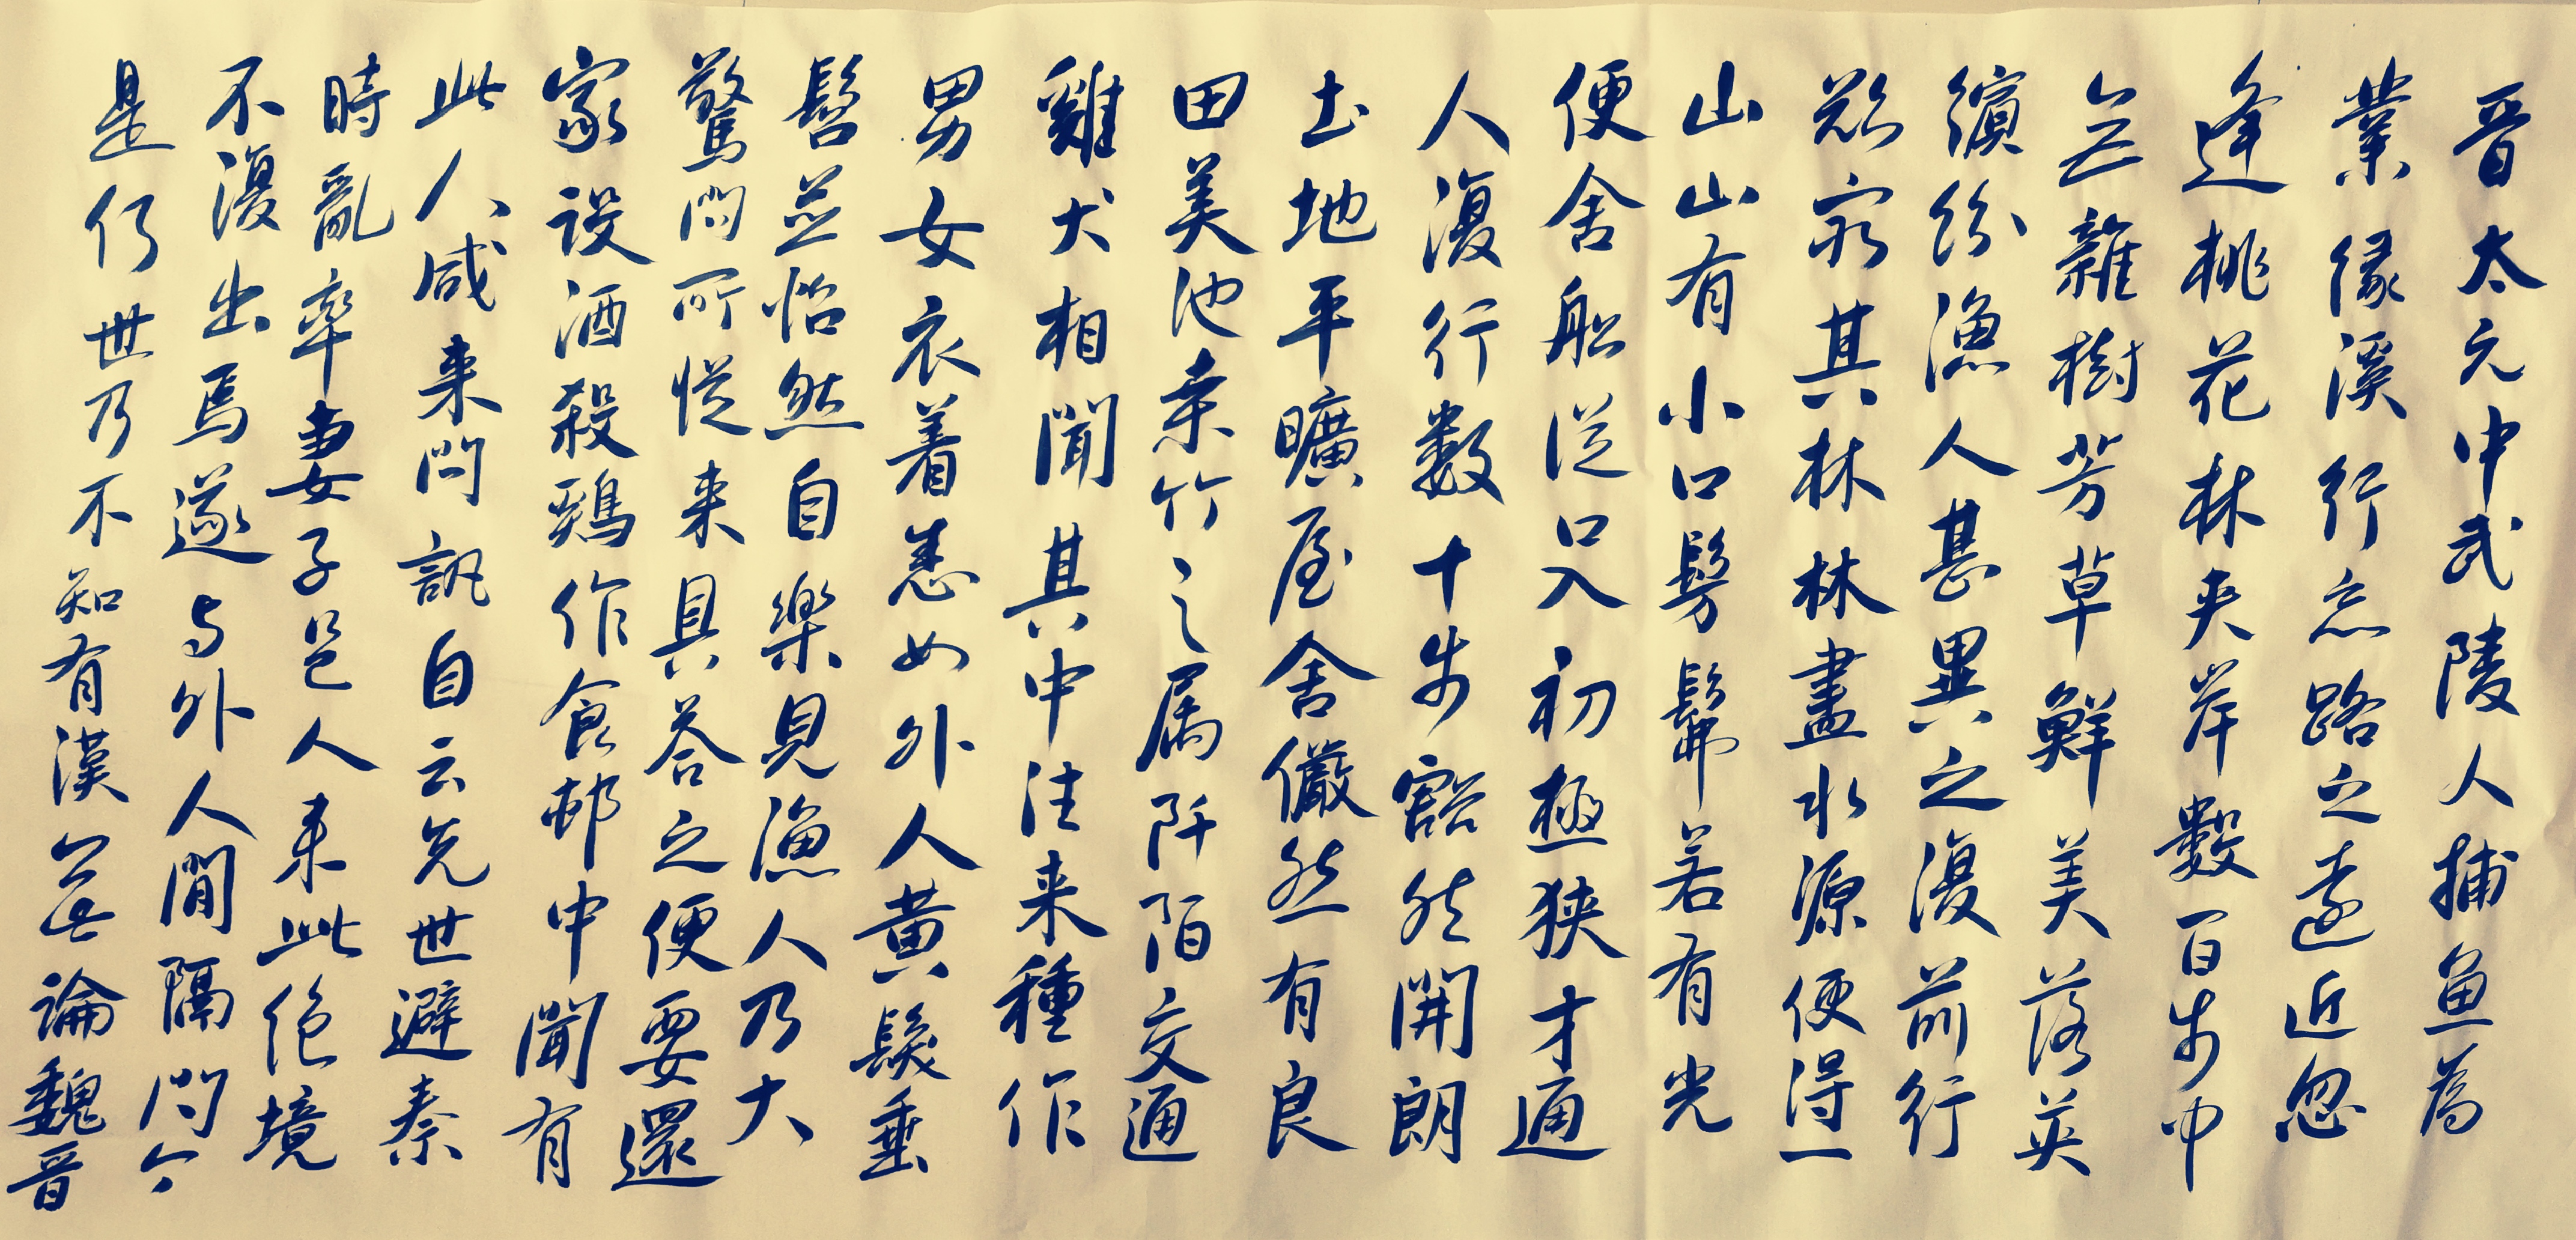 晉太元中武陵人捕魚為
業緣溪行忘路之遠近忽
逢桃花林夾岸數百步中
無雜樹芳草鮮美落英
繽紛漁人甚異之復前行
欲窮其林林盡水源便得一
山山有小口髣髴若有光
便舍船從口入初極狹才通
人復行數十步豁然開朗
土地平曠屋舍儼然有良
田美池桑竹之屬阡陌交通
雞犬相聞其中往来種作
男女衣着悉如外人黃髮垂
髫並怡然自樂見漁人乃大
驚問所從来具答之便要還
家設酒殺鷄作食邨中聞有
此人咸来問訊自云先世避秦
時亂率妻子邑人来此絕境
不復出焉遂与外人間隔問今
是何世乃不知有漢無論魏晉